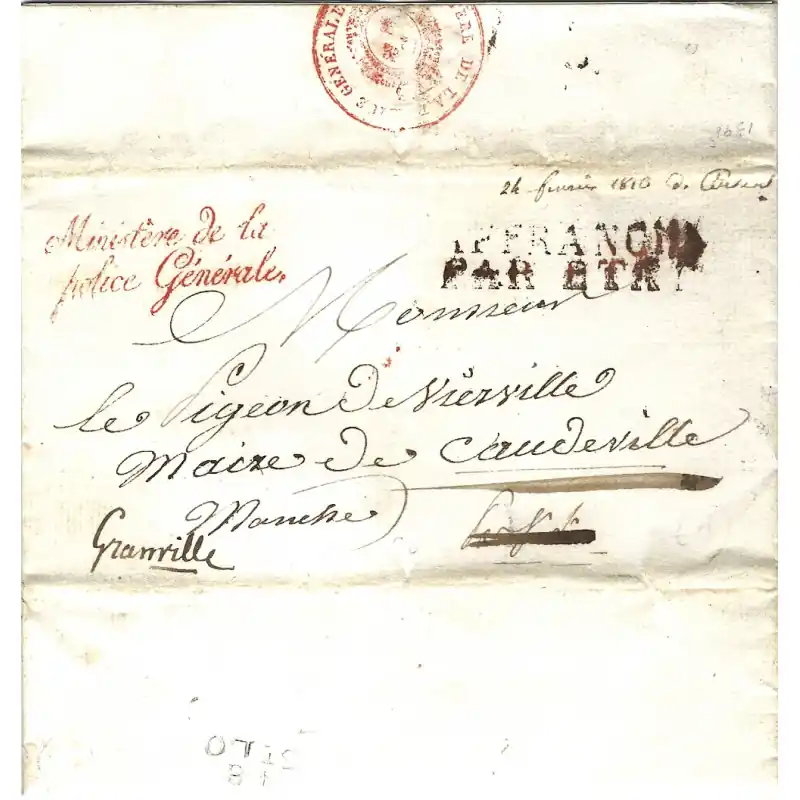 GÉNÉRALE
DE LA
24 février 1810 de
Ministère de la
police Générale.
AFFRANCHI
PAR ETAT
Monsieur
le Pigeon de Vierville
Maire de Caudeville
Manche
Granville